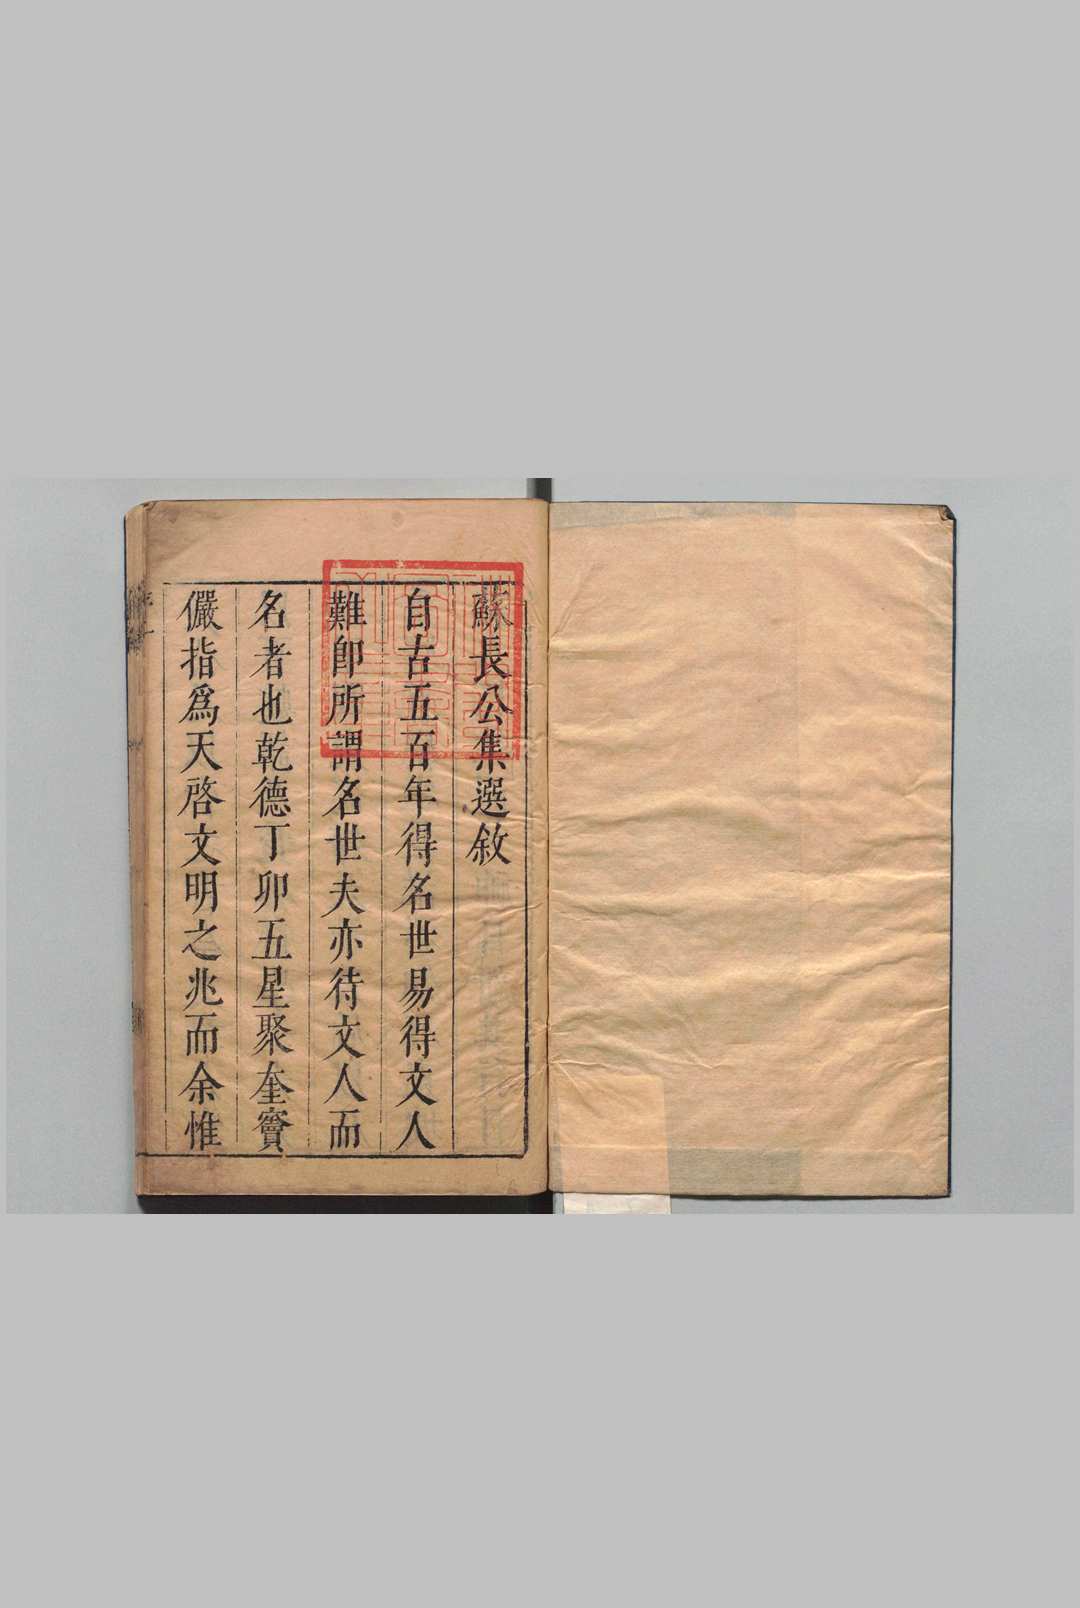 蘇長公集選敘
自古五百年得名世易得文人
難卽所謂名世夫亦待文人而
名者也乾德丁卯五星聚奎竇
儼指爲天啓文明之兆而余惟